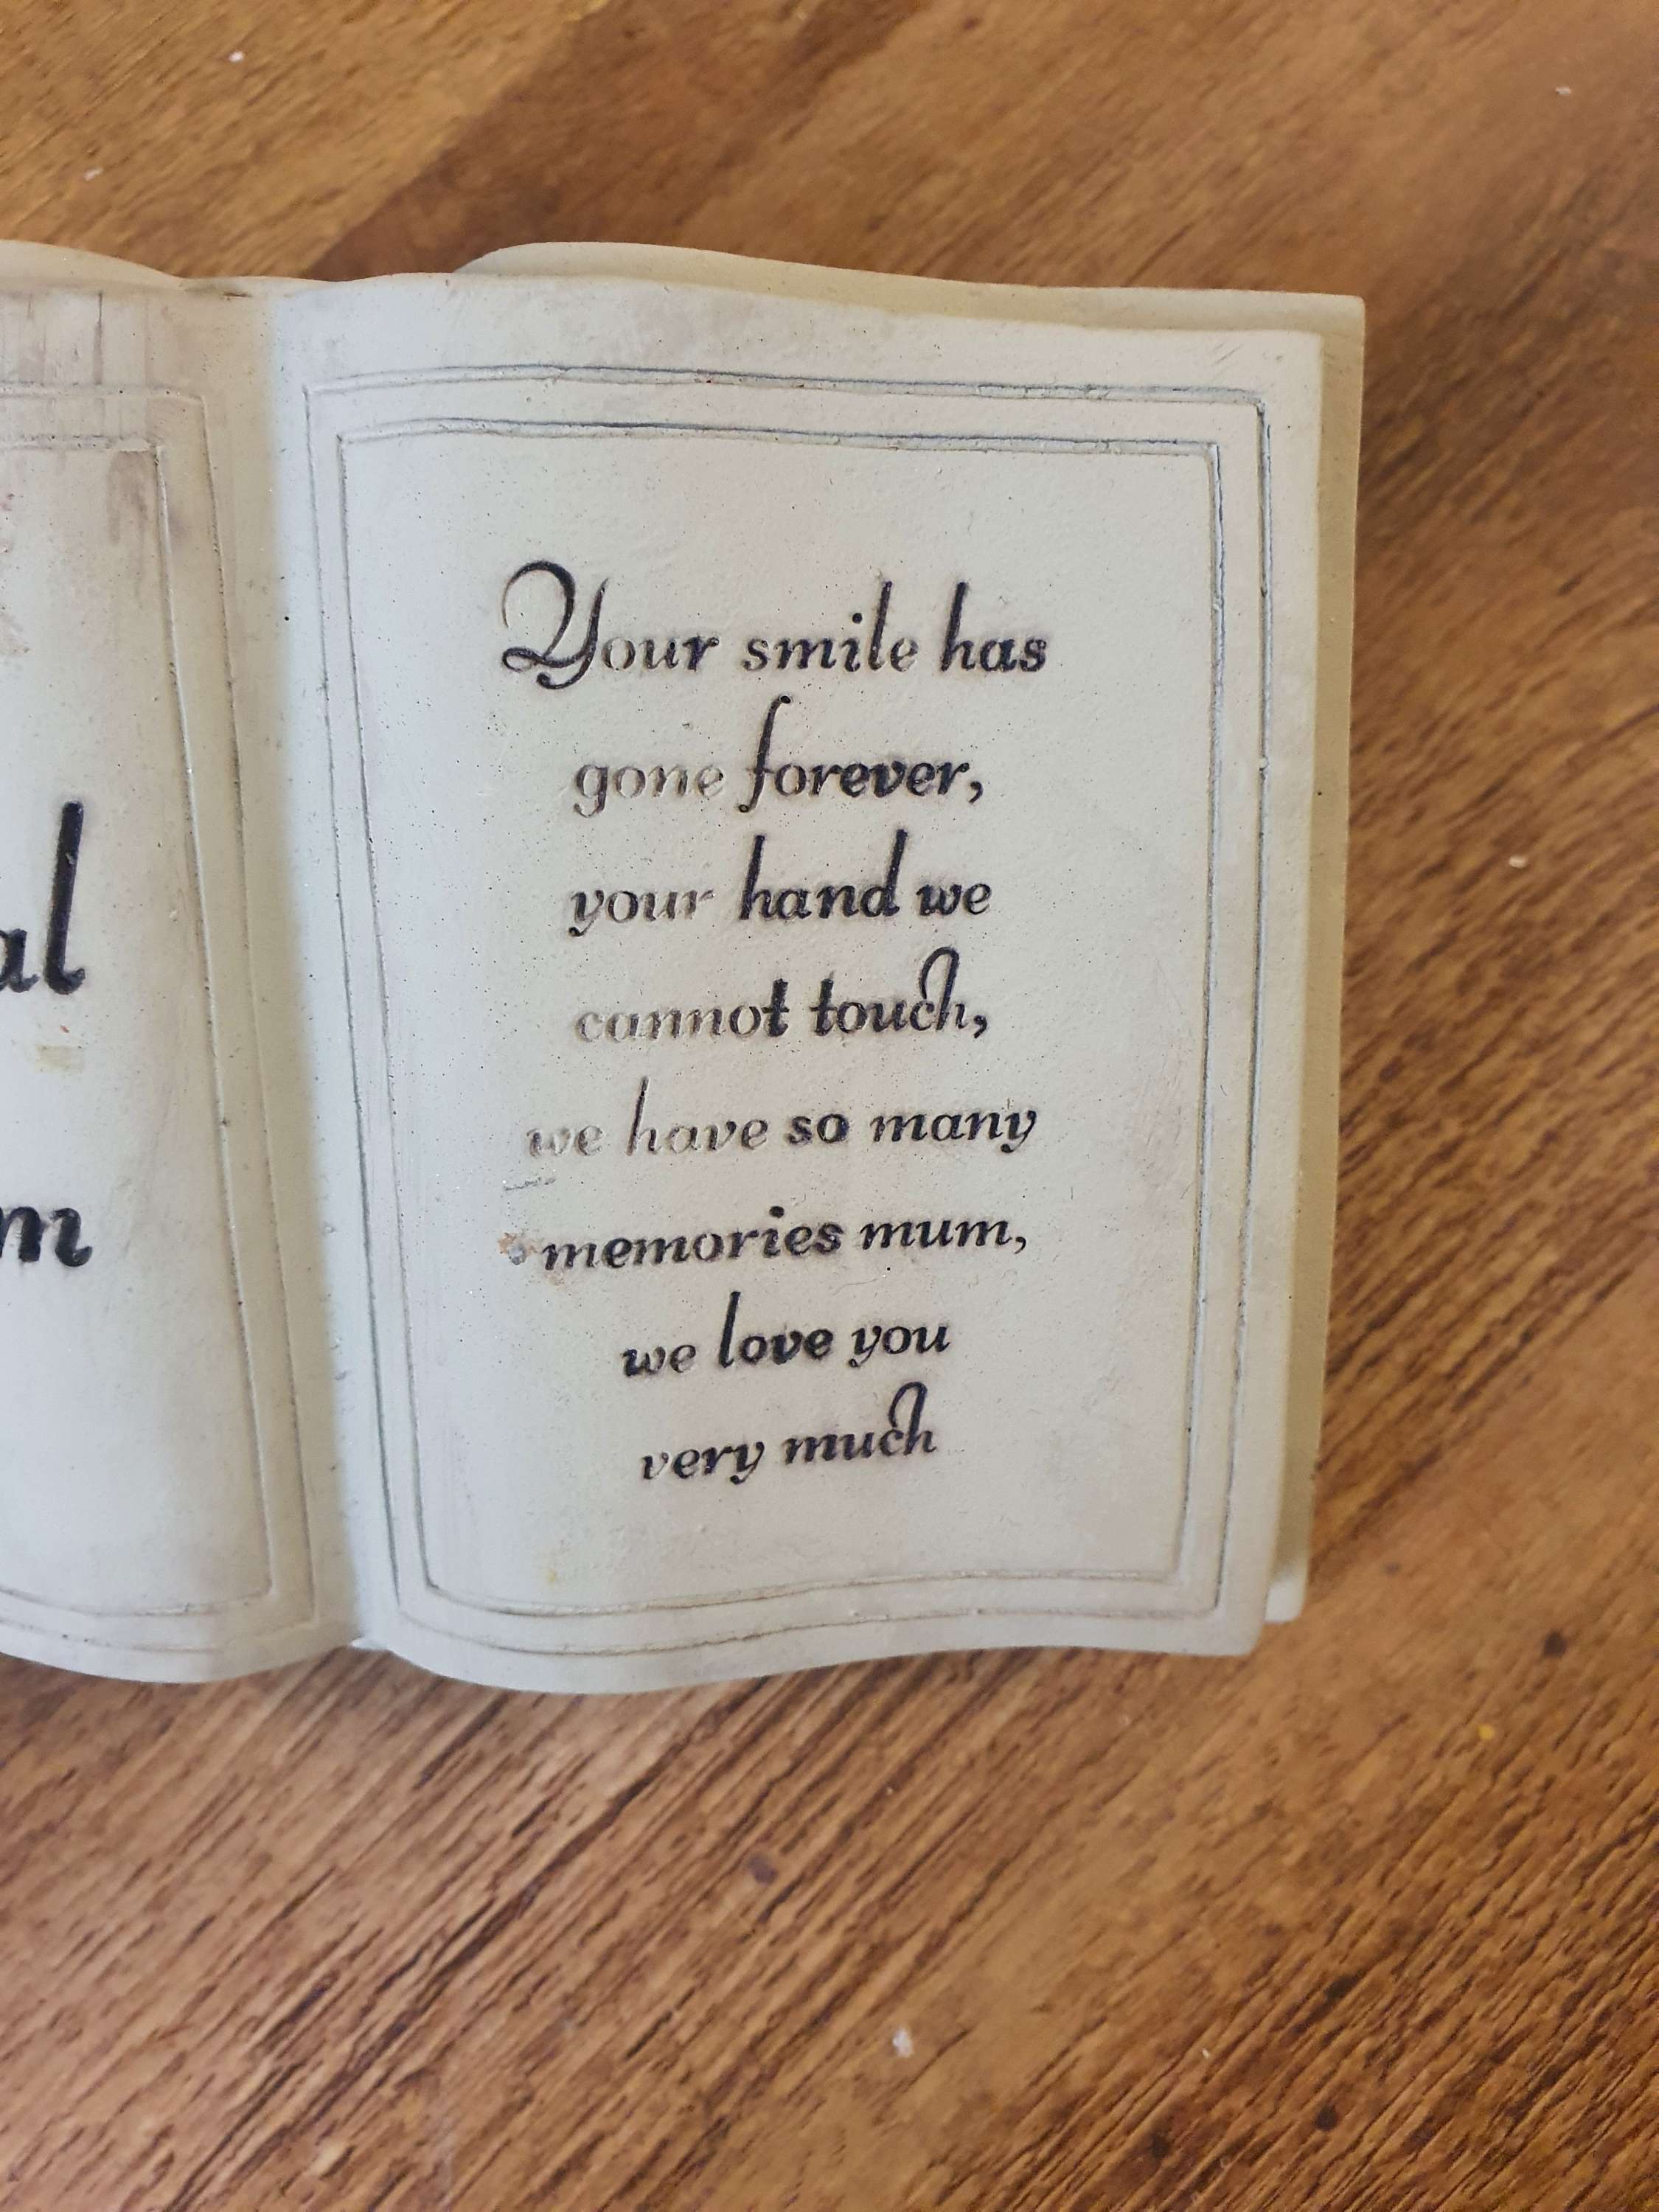 Your smile has
gone forever,
your hand we
cannot touch,
we have so many
memories mum,
we love you
very much